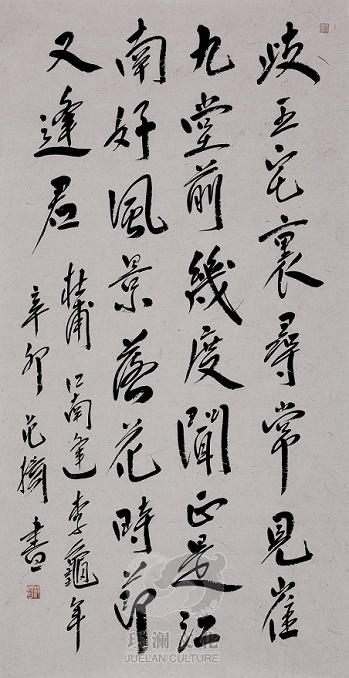 歧王宅裏尋常見崔
九堂前幾度聞正是江
南好風景落花時節
又逢君
杜甫江南逢李龜年
辛卯范擠書
珏澜文化
JUELAN CULTURE